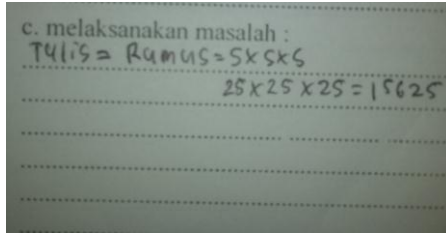 c. melaksanakan masalah :
Tulis = Rumus = S x S x S
25 x 25 x 25 = 15625